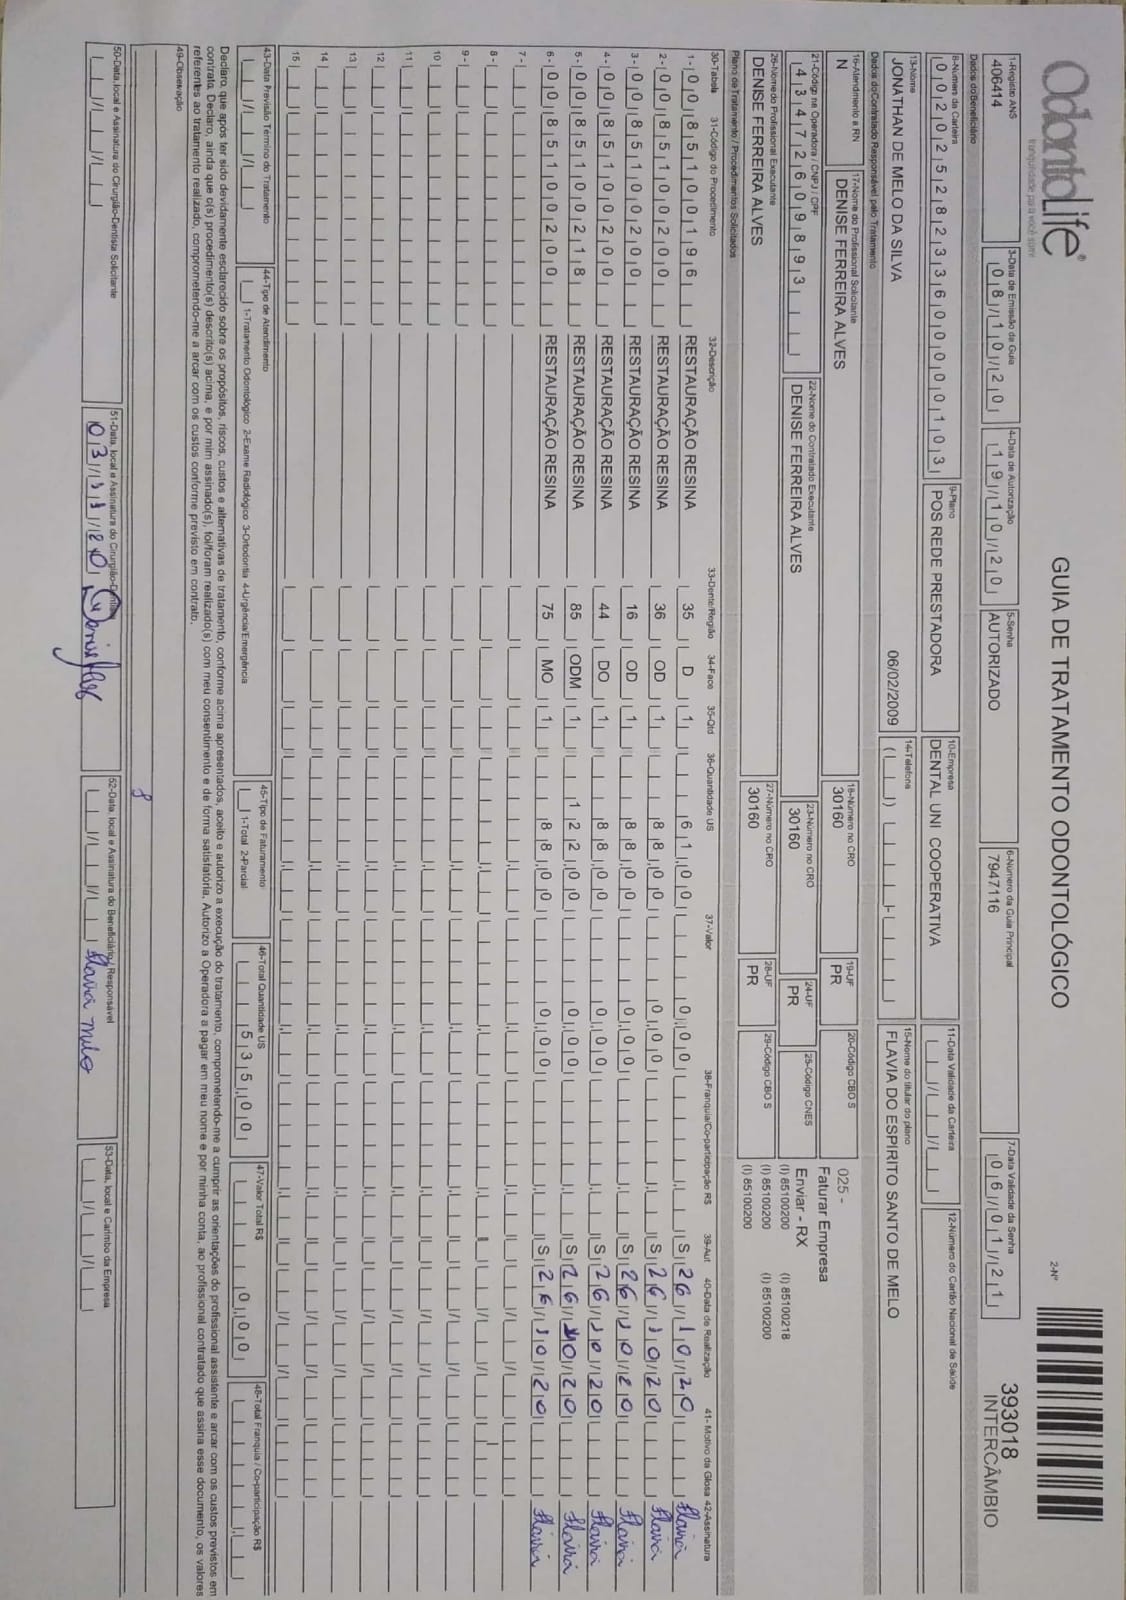 OdontoLife®
tranquilidade para você sorrir
GUIA DE TRATAMENTO ODONTOLÓGICO
2-Nº
393018
INTERCÂMBIO
1-Registro ANS
406414
3-Data de Emissão da Guia
08/10/20
4-Data de Autorização
19/10/20
5-Senha
AUTORIZADO
6-Número da Guia Principal
7947116
7-Data Validade da Senha
06/01/21
Dados do Beneficiário
8-Número da Carteira
00202528233600000103
9-Plano
POS REDE PRESTADORA
10-Empresa
DENTAL UNI COOPERATIVA
11-Data Validade da Carteira
12-Número do Cartão Nacional de Saúde
13-Nome
JONATHAN DE MELO DA SILVA
06/02/2009
14-Telefone
15-Nome do titular do plano
FLAVIA DO ESPIRITO SANTO DE MELO
Dados do Contratado Responsável pelo Tratamento
16-Atendimento a RN
N
17-Nome do Profissional Solicitante
DENISE FERREIRA ALVES
18-Número no CRO
30160
19-UF
PR
20-Código CBO S
025 -
Faturar Empresa
Enviar - RX
(I) 85100200 (I) 85100218
(I) 85100200 (I) 85100200
(I) 85100200
21-Código na Operadora / CNPJ / CPF
43472609893
22-Nome do Contratado Executante
DENISE FERREIRA ALVES
23-Número no CRO
30160
24-UF
PR
25-Código CNES
26-Nome do Profissional Executante
DENISE FERREIRA ALVES
27-Número no CRO
30160
28-UF
PR
29-Código CBO S
Plano de Tratamento / Procedimentos Solicitados
30-Tabela 31-Código do Procedimento 32-Descrição 33-Dente/Região 34-Face 35-Qtd 36-Quantidade US 37-Valor 38-Franquia/Co-participação R$ 39-Aut 40-Data de Realização 41- Motivo da Glosa 42-Assinatura
1- 00 85100196 RESTAURAÇÃO RESINA 35 D 1 61,00 0,00 S 26/10/20 Flavia
2- 00 85100200 RESTAURAÇÃO RESINA 36 OD 1 88,00 0,00 S 26/10/20 Flavia
3- 00 85100200 RESTAURAÇÃO RESINA 16 OD 1 88,00 0,00 S 26/10/20 Flavia
4- 00 85100200 RESTAURAÇÃO RESINA 44 DO 1 88,00 0,00 S 26/10/20 Flavia
5- 00 85100218 RESTAURAÇÃO RESINA 85 ODM 1 122,00 0,00 S 26/10/20 Flavia
6- 00 85100200 RESTAURAÇÃO RESINA 75 MO 1 88,00 0,00 S 26/10/20 Flavia
7-
8-
9-
10
11
12
13
14
15
43-Data Previsão Término do Tratamento
44-Tipo de Atendimento
1-Tratamento Odontológico 2-Exame Radiológico 3-Ortodontia 4-Urgência/Emergência
45-Tipo de Faturamento
1-Total 2-Parcial
46-Total Quantidade US
535,00
47-Valor Total R$
0,00
48-Total Franquia / Co-participação R$
Declaro, que após ter sido devidamente esclarecido sobre os propósitos, riscos, custos e alternativas de tratamento, conforme acima apresentados, aceito e autorizo a execução do tratamento, comprometendo-me a cumprir as orientações do profissional assistente e arcar com os custos previstos em
contrato. Declaro, ainda que o(s) procedimento(s) descrito(s) acima, e por mim assinado(s), foi/foram realizado(s) com meu consentimento e de forma satisfatória. Autorizo a Operadora a pagar em meu nome e por minha conta, ao profissional contratado que assina esse documento, os valores
referentes ao tratamento realizado, comprometendo-me a arcar com os custos conforme previsto em contrato.
49-Observação
8
50-Data, local e Assinatura do Cirurgião-Dentista Solicitante
51-Data, local e Assinatura do Cirurgião-Dentista
03/11/20
52-Data, local e Assinatura do Beneficiário / Responsável
Flavia Melo
53-Data, local e Carimbo da Empresa